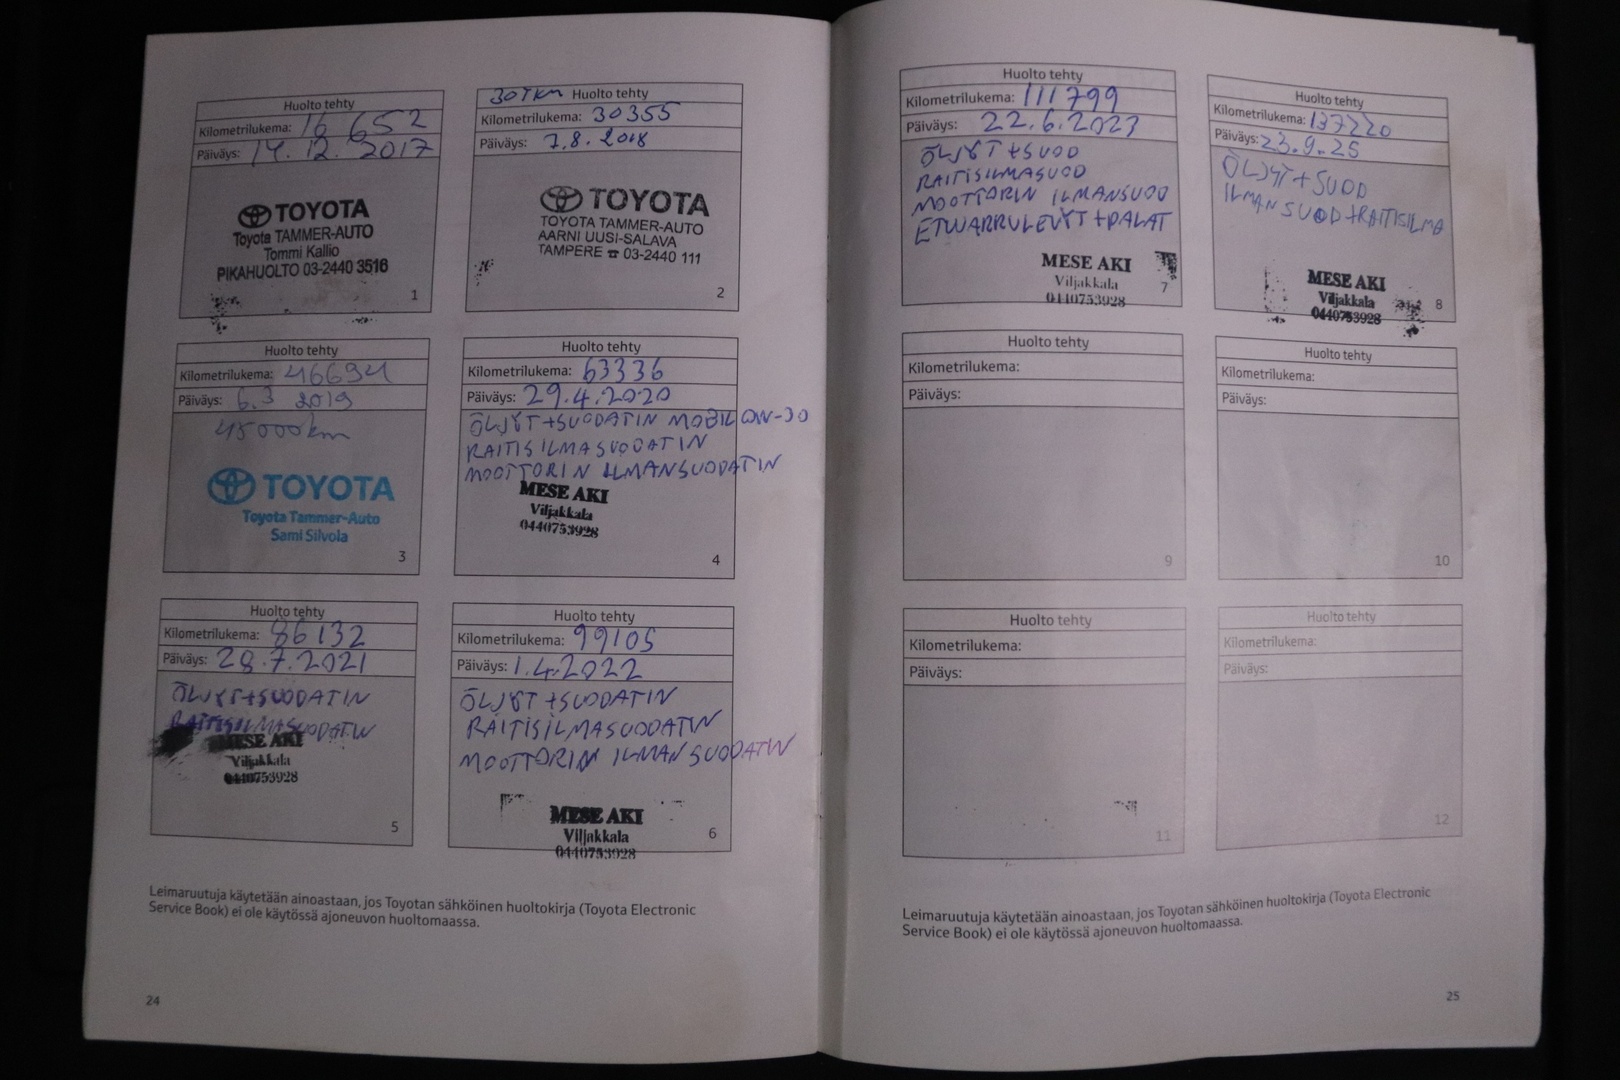 Huolto tehty
Kilometrilukema: 16 652
Päiväys: 14.12. 2017
TOYOTA
Toyota TAMMER-AUTO
Tommi Kallio
PIKAHUOLTO 03-2440 3516
1
30TKM Huolto tehty
Kilometrilukema: 30355
Päiväys: 7.8. 2018
TOYOTA
TOYOTA TAMMER-AUTO
AARNI UUSI-SALAVA
TAMPERE ☎ 03-2440 111
2
Huolto tehty
Kilometrilukema: 46694
Päiväys: 6.3 2019
45000km
TOYOTA
Toyota Tammer-Auto
Sami Silvola
3
Huolto tehty
Kilometrilukema: 63336
Päiväys: 29.4.2020
ÖLJYT+SUODATIN MOBIL 0W-30
RAITISILMASUODATIN
MOOTTORIN ILMANSUODATIN
MESE AKI
Viljakkala
0440753928
4
Huolto tehty
Kilometrilukema: 86132
Päiväys: 28.7.2021
ÖLJYT+SUODATIN
RAITISILMASUODATIN
MESE AKI
Viljakkala
0440753928
5
Huolto tehty
Kilometrilukema: 99105
Päiväys: 1.4.2022
ÖLJYT+SUODATIN
RAITISILMASUODATIN
MOOTTORIN ILMANSUODATIN
MESE AKI
Viljakkala
0440753928
6
Leimaruutuja käytetään ainoastaan, jos Toyotan sähköinen huoltokirja (Toyota Electronic
Service Book) ei ole käytössä ajoneuvon huoltomaassa.
24
Huolto tehty
Kilometrilukema: 111799
Päiväys: 22.6.2023
ÖLJYT+SUOD
RAITISILMASUOD
MOOTTORIN ILMANSUOD
ETUJARRULEVYT+PALAT
MESE AKI
Viljakkala
0440753928
7
Huolto tehty
Kilometrilukema: 137220
Päiväys: 23.9.25
ÖLJYT+SUOD
ILMANSUOD+RAITISILMA
MESE AKI
Viljakkala
0440753928
8
Huolto tehty
Kilometrilukema:
Päiväys:
9
Huolto tehty
Kilometrilukema:
Päiväys:
10
Huolto tehty
Kilometrilukema:
Päiväys:
11
Huolto tehty
Kilometrilukema:
Päiväys:
12
Leimaruutuja käytetään ainoastaan, jos Toyotan sähköinen huoltokirja (Toyota Electronic
Service Book) ei ole käytössä ajoneuvon huoltomaassa.
25